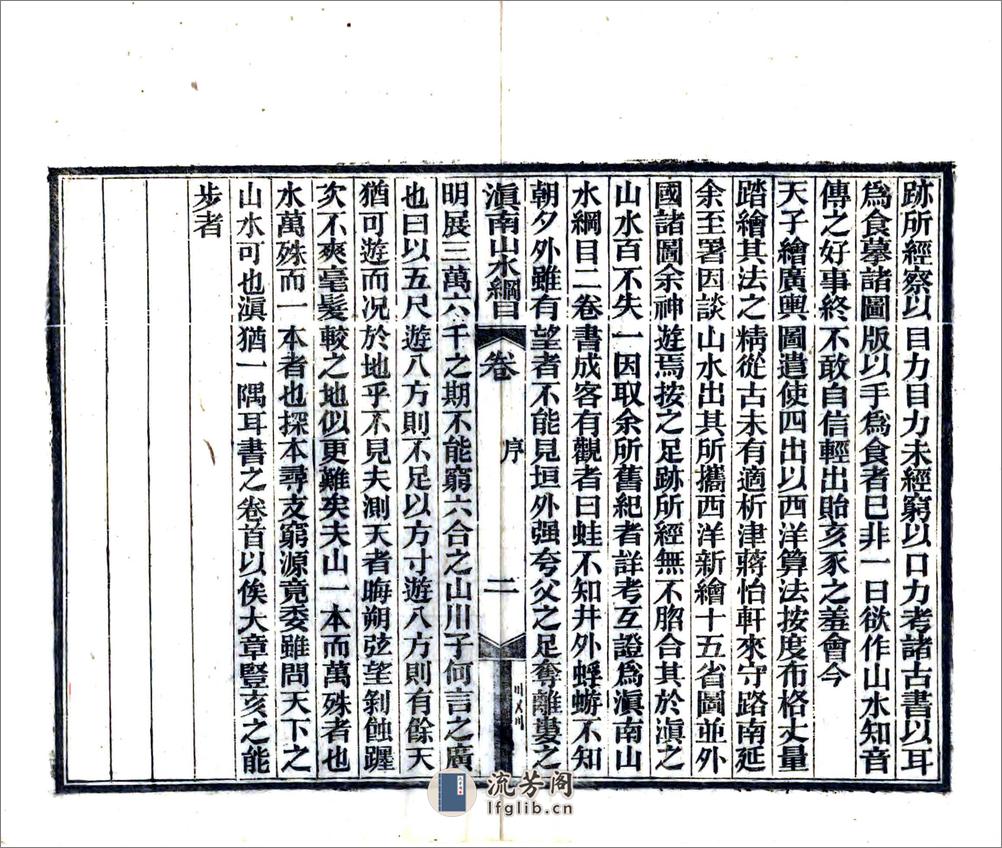 跡所經察以目力目力未經窮以口力考諸古書以耳
爲食摹諸圖版以手爲食者已非一日欲作山水知音
傳之好事終不敢自信輕出貽亥豕之羞會今
天子繪廣輿圖遣使四出以西洋算法按度布格丈量
踏繪其法之精從古未有適析津蔣怡軒來守路南延
余至署因談山水出其所攜西洋新繪十五省圖並外
國諸圖余神遊焉按之足跡所經無不脗合其於滇之
山水百不失一因取余所舊紀者詳考互證爲滇南山
水綱目二卷書成客有觀者曰蛙不知井外蜉蝣不知
朝夕外雖有望者不能見垣外强夸父之足奪離婁之
滇南山水綱目
卷
序
二
明展三萬六千之期不能窮六合之山川子何言之廣
也曰以五尺遊八方則不足以方寸遊八方則有餘天
猶可遊而况於地乎不見夫測天者晦朔弦望剝蝕躔
次不爽毫髮較之地似更難矣夫山一本而萬殊者也
水萬殊而一本者也探本尋支窮源竟委雖問天下之
山水可也滇猶一隅耳書之卷首以俟大章豎亥之能
步者
流芳阁
lfglib.cn